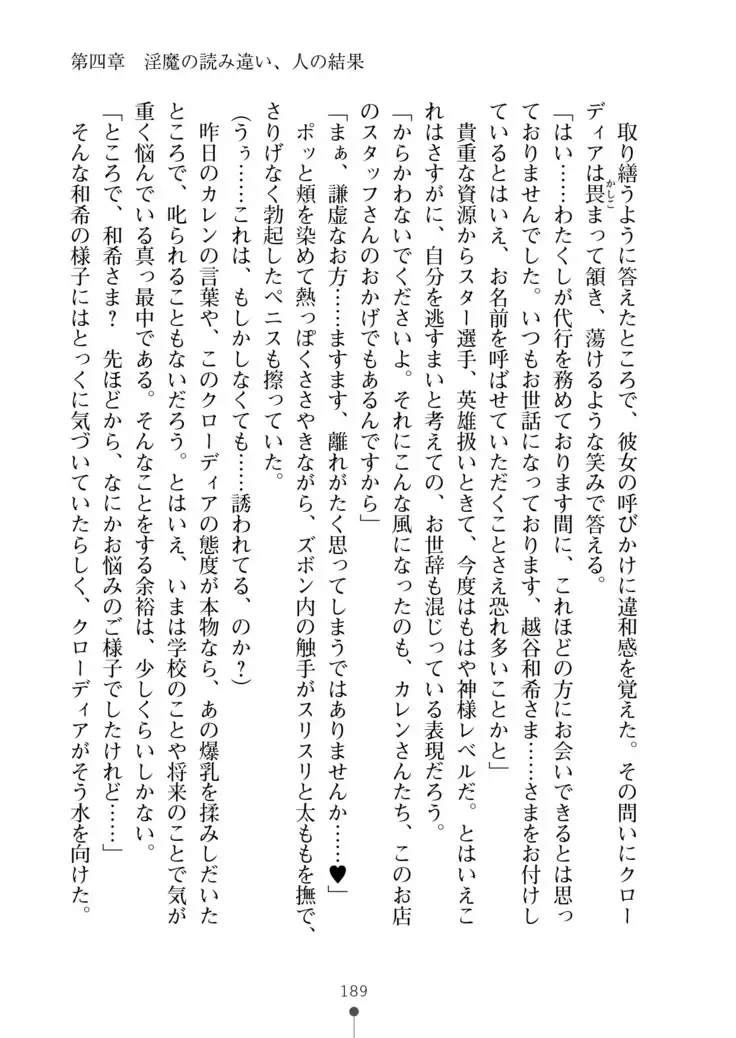 第四章　淫魔の読み違い、人の結果
取り繕うように答えたところで、彼女の呼びかけに違和感を覚えた。その問いにクロー
ディアは畏まって頷き、蕩けるような笑みで答える。
かしこ
「はい……わたくしが代行を務めております間に、これほどの方にお会いできるとは思っ
ておりませんでした。いつもお世話になっております、越谷和希さま……さまをお付けし
ているとはいえ、お名前を呼ばせていただくことさえ恐れ多いことかと」
貴重な資源からスター選手、英雄扱いときて、今度はもはや神様レベルだ。とはいえこ
れはさすがに、自分を逃すまいと考えての、お世辞も混じっている表現だろう。
「からかわないでくださいよ。それにこんな風になったのも、カレンさんたち、このお店
のスタッフさんのおかげでもあるんですから」
「まぁ、謙虚なお方……ますます、離れがたく思ってしまうではありませんか……♥」
ポッと頬を染めて熱っぽくささやきながら、ズボン内の触手がスリスリと太ももを撫で、
さりげなく勃起したペニスも擦っていた。
(うぅ……これは、もしかしなくても……誘われてる、のか？)
昨日のカレンの言葉や、このクローディアの態度が本物なら、あの爆乳を揉みしだいた
ところで、叱られることもないだろう。とはいえ、いまは学校のことや将来のことで気が
重く悩んでいる真っ最中である。そんなことをする余裕は、少しくらいしかない。
「ところで、和希さま？　先ほどから、なにかお悩みのご様子でしたけれど……」
そんな和希の様子にはとっくに気づいていたらしく、クローディアがそう水を向けた。
189